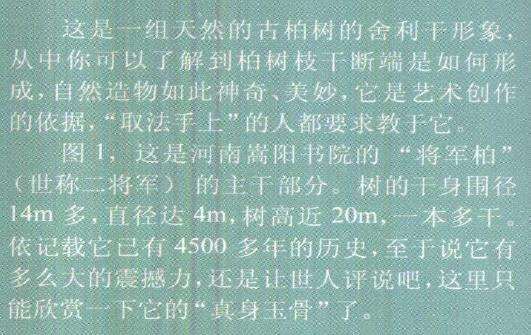 这是一组天然的古柏树的舍利干形象，
从中你可以了解到柏树枝干断端是如何形
成，自然造物如此神奇、美妙，它是艺术创作
的依据，“取法手上”的人都要求教于它。
图1，这是河南嵩阳书院的“将军柏”
（世称二将军）的主干部分。树的干身围径
14m 多，直径达 4m，树高近 20m，一本多干。
依记载它已有 4500 多年的历史，至于说它有
多么大的震撼力，还是让世人评说吧，这里只
能欣赏一下它的“真身玉骨”了。